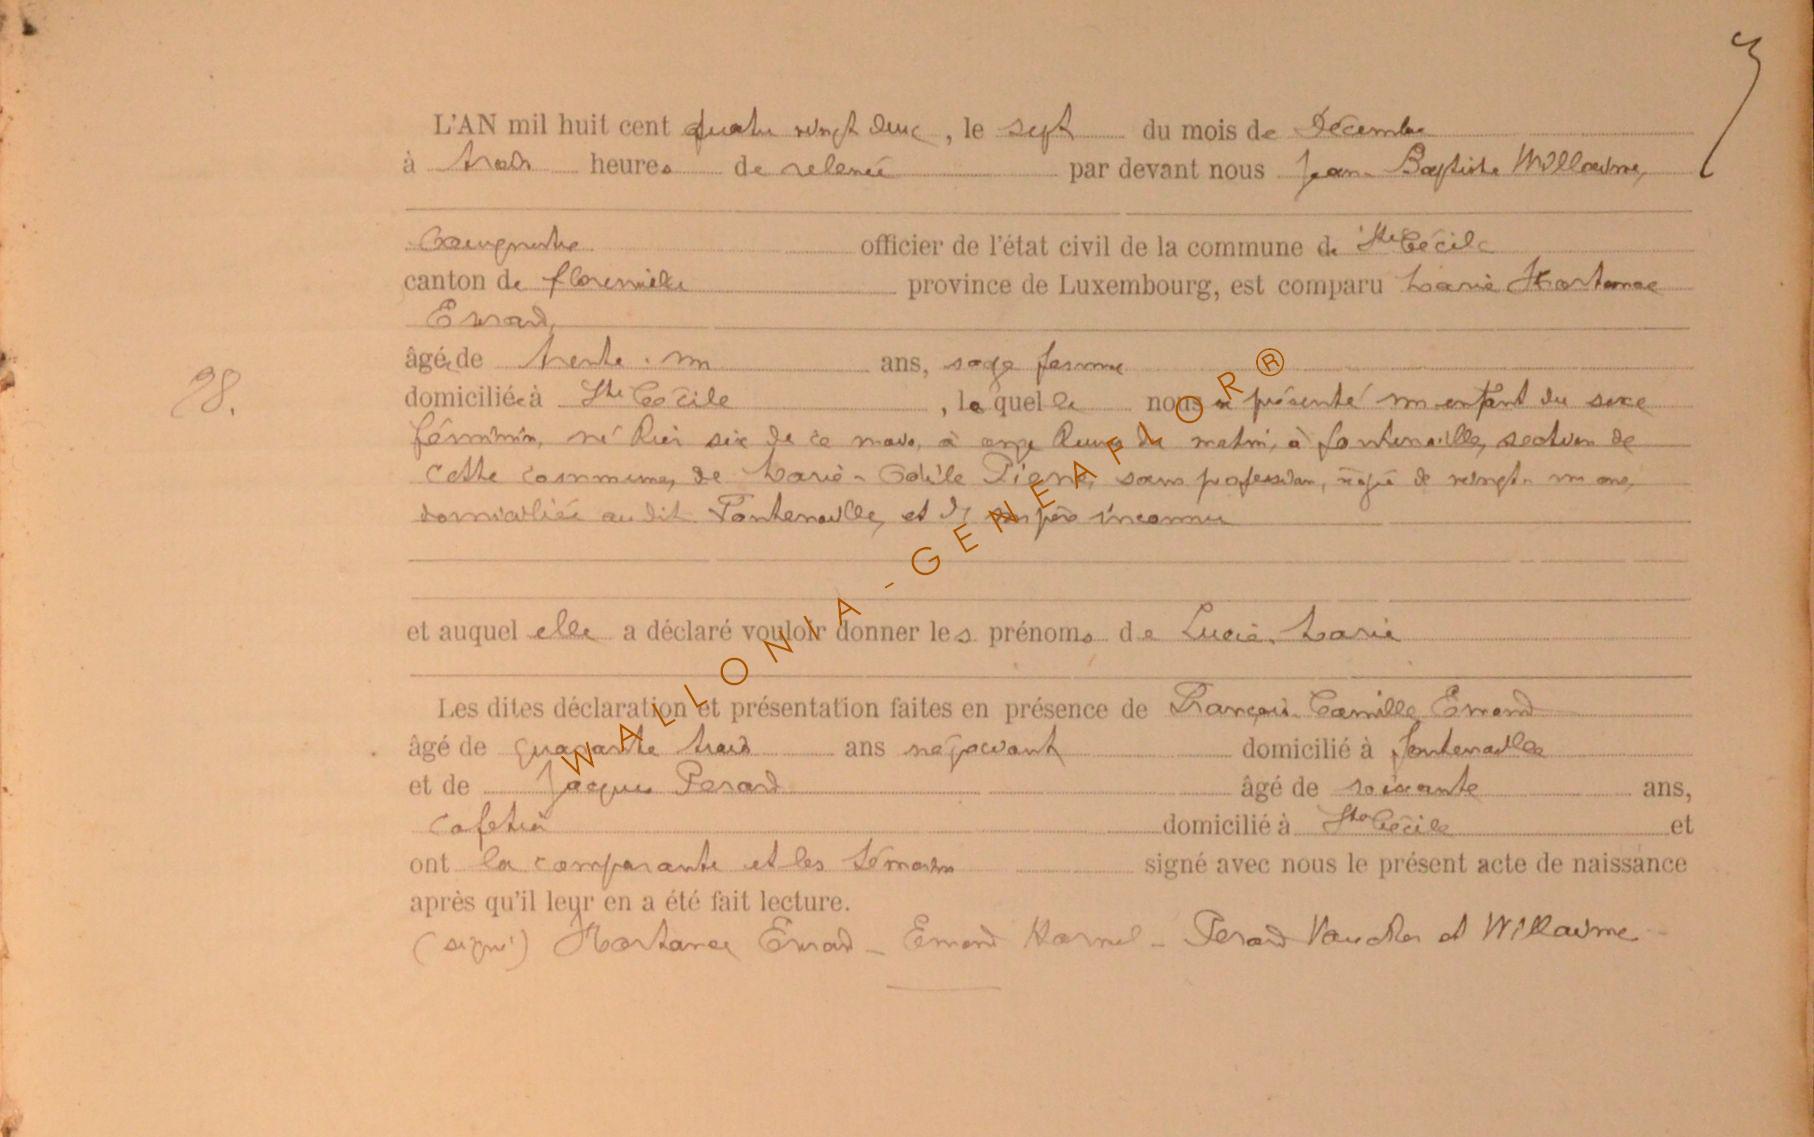 L'AN mil huit cent quatre vingt deux, le sept du mois de Décembre
à trois heures de relevée par devant nous Jean Baptiste Willaume,
Bourgmestre officier de l'état civil de la commune de Ste Cécile
canton de florenville province de Luxembourg, est comparu Marie Hortence
Evrard,
âgée de trente-un ans, sage femme
28.
domiciliée à Ste Cécile, laquelle nous a présenté un enfant du sexe
féminin, né hier six de ce mois, à onze heures du matin, à fontenoille, section de
cette commune, de Marie-Odile sans profession, agée de vingt-un ans,
domiciliée au dit Fontenoille, et de père inconnu
et auquel elle a déclaré vouloir donner les prénoms de Lucie-Marie
Les dites déclaration et présentation faites en présence de François-Camille Emond
âgé de quarante trois ans négociant domicilié à fontenoille
et de Jacques Perard âgé de soixante ans,
cafetier domicilié à Ste Cécile et
ont la comparante et les témoins signé avec nous le présent acte de naissance
après qu'il leur en a été fait lecture.
(signé) Hortance Evrard - Emond - Perard et Willaume
WALLONIA-GENEAFLOR®